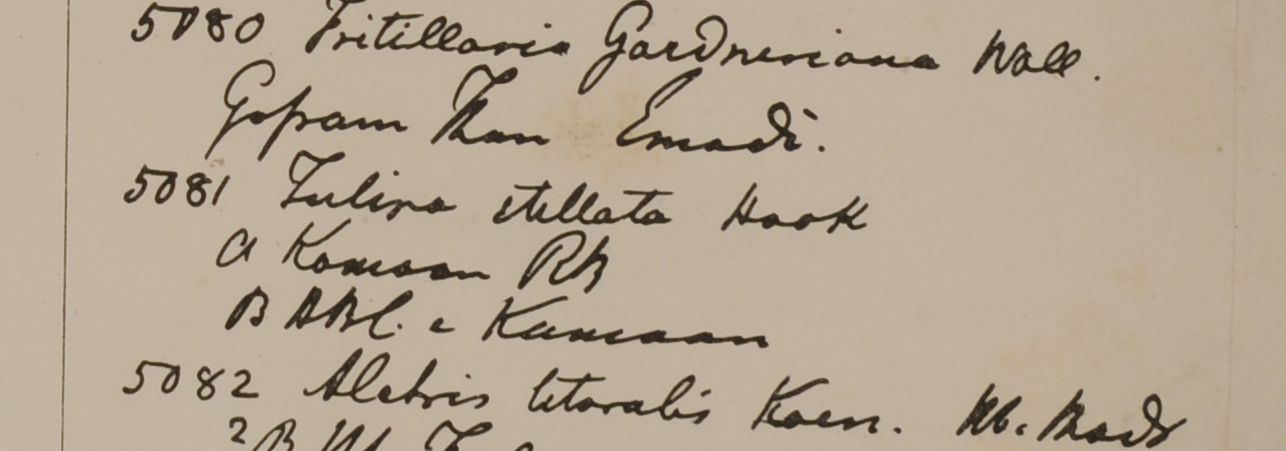 5080 Fritillaria Gardneriana Wall.
Gosam Than Emodi.
5081 Tulipa stellata Hook
a Kamaon RB
B HBC. e Kumaon
5082 Aletris litoralis Koen. Hb. Madr
2 B